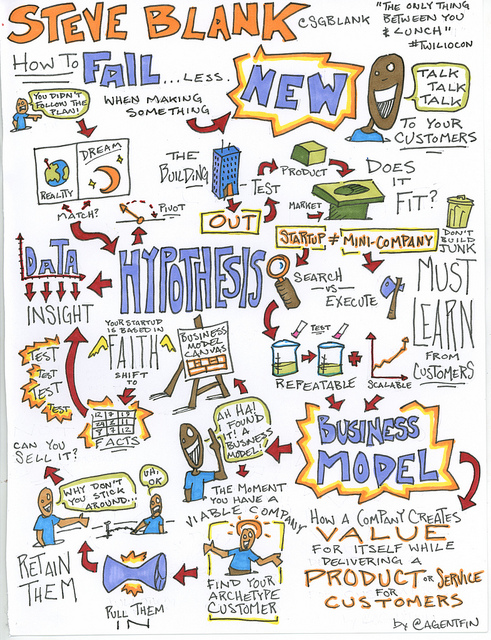 STEVE BLANK
@SGBLANK
"THE ONLY THING
BETWEEN YOU
& LUNCH"
#TWILIOCON
HOW TO FAIL ...LESS.
WHEN MAKING
SOMETHING
NEW
YOU DIDN'T
FOLLOW THE
PLAN!
TALK
TALK
TALK
TO YOUR
CUSTOMERS
REALITY
DREAM
MATCH?
PIVOT
THE
BUILDING
OUT
TEST
PRODUCT
MARKET
DOES
IT
FIT?
DON'T
BUILD
JUNK
STARTUP ≠ MINI-COMPANY
SEARCH
-VS-
EXECUTE
MUST
LEARN
FROM
CUSTOMERS
DATA
INSIGHT
HYPOTHESIS
TEST
REPEATABLE
SCALABLE
YOUR STARTUP
IS BASED IN
FAITH
SHIFT
TO
FACTS
BUSINESS
MODEL
CANVAS
TEST
TEST
TEST
TEST
AH HA!
I FOUND
IT! A
BUSINESS
MODEL!
BUSINESS
MODEL
THE MOMENT
YOU HAVE A
VIABLE COMPANY
CAN YOU
SELL IT?
WHY DON'T
YOU STICK
AROUND...
UH,
OK
RETAIN
THEM
PULL THEM
IN
FIND YOUR
ARCHETYPE
CUSTOMER
HOW A COMPANY CREATES
VALUE
FOR ITSELF WHILE
DELIVERING A
PRODUCT OR SERVICE
FOR
CUSTOMERS
by @AGENTFIN